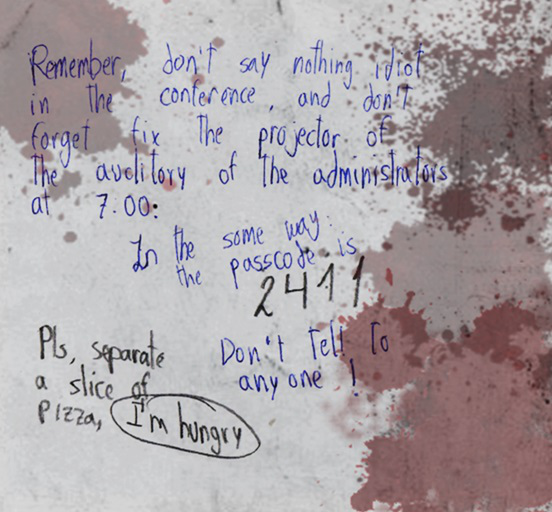 Remember, don't say nothing idiot
in the conference, and don't
forget fix the projector of
the auditory of the administrators
at 7:00:
In the some way:
the passcode is
2411
Don't Tell To
any one !
Pls, separate
a slice of
pizza,
I'm hungry